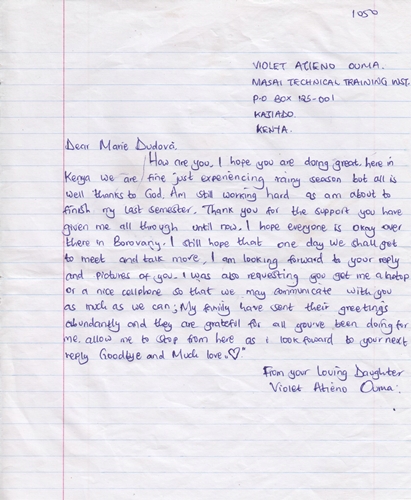 1050
VIOLET ATIENO OUMA.
MASAI TECHNICAL TRAINING INST.
P.O BOX 125-001
KAJIADO.
KENYA.
Dear Marie Dudová.
How are you, I hope you are doing great. here in
Kenya we are fine just experiencing rainy season but all is
well thanks to God. Am still working hard as am about to
finish my last semester. Thank you for the support you have
given me all through until now. I hope everyone is okay over
there in Borovany. I still hope that one day we shall get
to meet and talk more, I am looking forward to your reply
and pictures of you. I was also requesting you get me a laptop
or a nice cellphone so that we may communicate with you
as much as we can; My family have sent their greetings
abundantly and they are grateful for all you've been doing for
me. allow me to stop from here as i look foward to your next
reply Goodbye and Much love. ♡"
From your Loving Daughter
Violet Atieno Ouma.